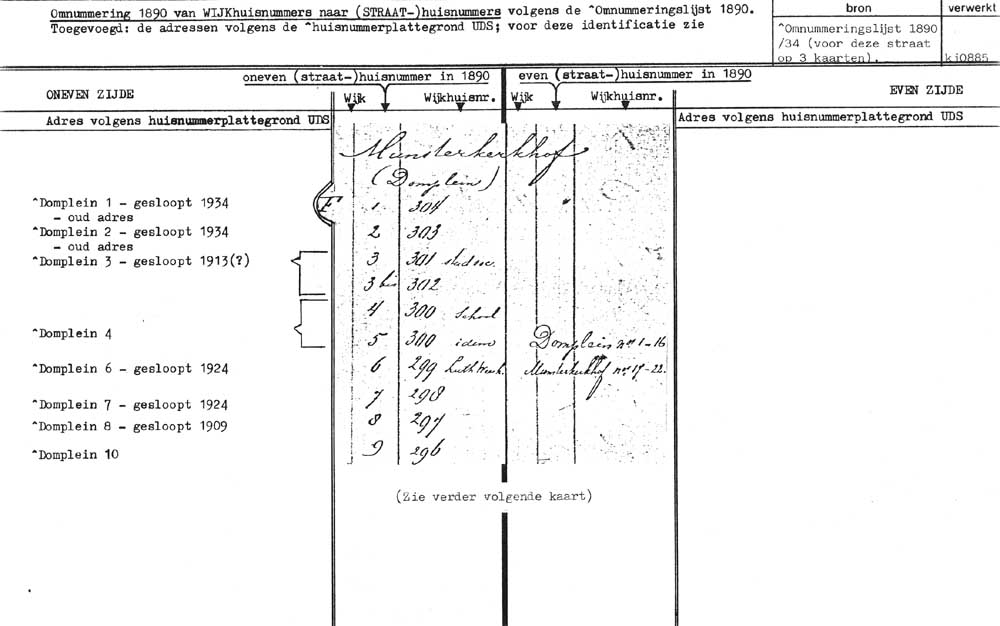 Omnummering 1890 van WIJKhuisnummers naar (STRAAT-)huisnummers volgens de ^Omnummeringslijst 1890.
Toegevoegd: de adressen volgens de ^huisnummerplattegrond UDS; voor deze identificatie zie
bron
verwerkt
^Omnummeringslijst 1890
/34 (voor deze straat
op 3 kaarten).
kj0885
oneven (straat-)huisnummer in 1890
even (straat-)huisnummer in 1890
ONEVEN ZIJDE
Wijk
Wijkhuisnr.
Wijk
Wijkhuisnr.
EVEN ZIJDE
Adres volgens huisnummerplattegrond UDS
Adres volgens huisnummerplattegrond UDS
Munsterkerkhof
(Domplein)
^Domplein 1 - gesloopt 1934
- oud adres
F 1 304
^Domplein 2 - gesloopt 1934
- oud adres
2 303
^Domplein 3 - gesloopt 1913(?)
3 301
3 bis 302
4 300 School
^Domplein 4
5 300 idem
Domplein nrs 1-16
^Domplein 6 - gesloopt 1924
6 299
Munsterkerkhof nrs 17-22.
^Domplein 7 - gesloopt 1924
7 298
^Domplein 8 - gesloopt 1909
8 297
^Domplein 10
9 296
(Zie verder volgende kaart)